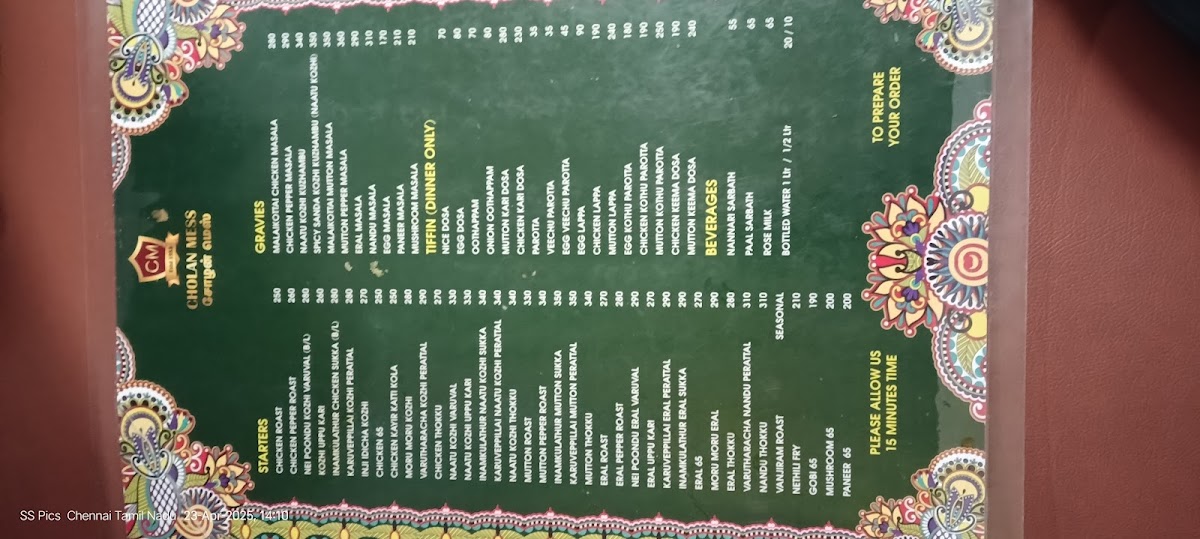 CM
CHOLAN MESS
சோழன் மெஸ்
STARTERS
CHICKEN ROAST 250
CHICKEN PEPPER ROAST 260
NEI POONDU KOZHI VARUVAL (B/L) 280
KOZHI UPPU KARI 260
INAMKULATHUR CHICKEN SUKKA (B/L) 280
KARUVEPPILLAI KOZHI PERATTAL 280
INJI IDICHA KOZHI 270
CHICKEN 65 250
CHICKEN KAYIR KATTI KOLA 250
MORU MORU KOZHI 280
VARUTHARACHA KOZHI PERATTAL 290
CHICKEN THOKKU 270
NAATU KOZHI VARUVAL 330
NAATU KOZHI UPPU KARI 330
INAMKULATHUR NAATU KOZHI SUKKA 340
KARUVEPPILAI NAATU KOZHI PERATTAL 340
NAATU KOZHI THOKKU 340
MUTTON ROAST 330
MUTTON PEPPER ROAST 340
INAMKULATHUR MUTTON SUKKA 350
KARUVEPPILLAI MUTTON PERATTAL 350
MUTTON THOKKU 340
ERAL ROAST 270
ERAL PEPPER ROAST 280
NEI POONDU ERAL VARUVAL 290
ERAL UPPU KARI 270
KARUVEPPILLAI ERAL PERATTAL 290
INAMKULATHUR ERAL SUKKA 290
ERAL 65 270
MORU MORU ERAL 290
ERAL THOKKU 280
VARUTHARACHA NANDU PERATTAL 310
NANDU THOKKU 310
VANJIRAM ROAST SEASONAL
NETHILI FRY 210
GOBI 65 190
MUSHROOM 65 200
PANEER 65 200
GRAVIES
MALAIKOTTAI CHICKEN MASALA 280
CHICKEN PEPPER MASALA 290
NAATU KOZHI KUZHAMBU 340
SPICY SANDA KOZHI KUZHAMBU (NAATU KOZHI) 350
MALAIKOTTAI MUTTON MASALA 350
MUTTON PEPPER MASALA 360
ERAL MASALA 290
NANDU MASALA 310
EGG MASALA 170
PANEER MASALA 210
MUSHROOM MASALA 210
TIFFIN (DINNER ONLY)
NICE DOSA 70
EGG DOSA 80
OOTHAPPAM 70
ONION OOTHAPPAM 80
MUTTON KARI DOSA 280
CHICKEN KARI DOSA 230
PAROTTA 35
VEECHU PAROTTA 35
EGG VEECHU PAROTTA 45
EGG LAPPA 90
CHICKEN LAPPA 190
MUTTON LAPPA 240
EGG KOTHU PAROTTA 180
CHICKEN KOTHU PAROTTA 190
MUTTON KOTHU PAROTTA 250
CHICKEN KEEMA DOSA 190
MUTTON KEEMA DOSA 240
BEVERAGES
NANNARI SARBATH 55
PAAL SARBATH 65
ROSE MILK 65
BOTTLED WATER 1 Ltr / 1/2 Ltr 20 / 10
PLEASE ALLOW US
15 MINUTES TIME
TO PREPARE
YOUR ORDER
SS Pics Chennai Tamil Nadu 23-Apr-2025, 14:10